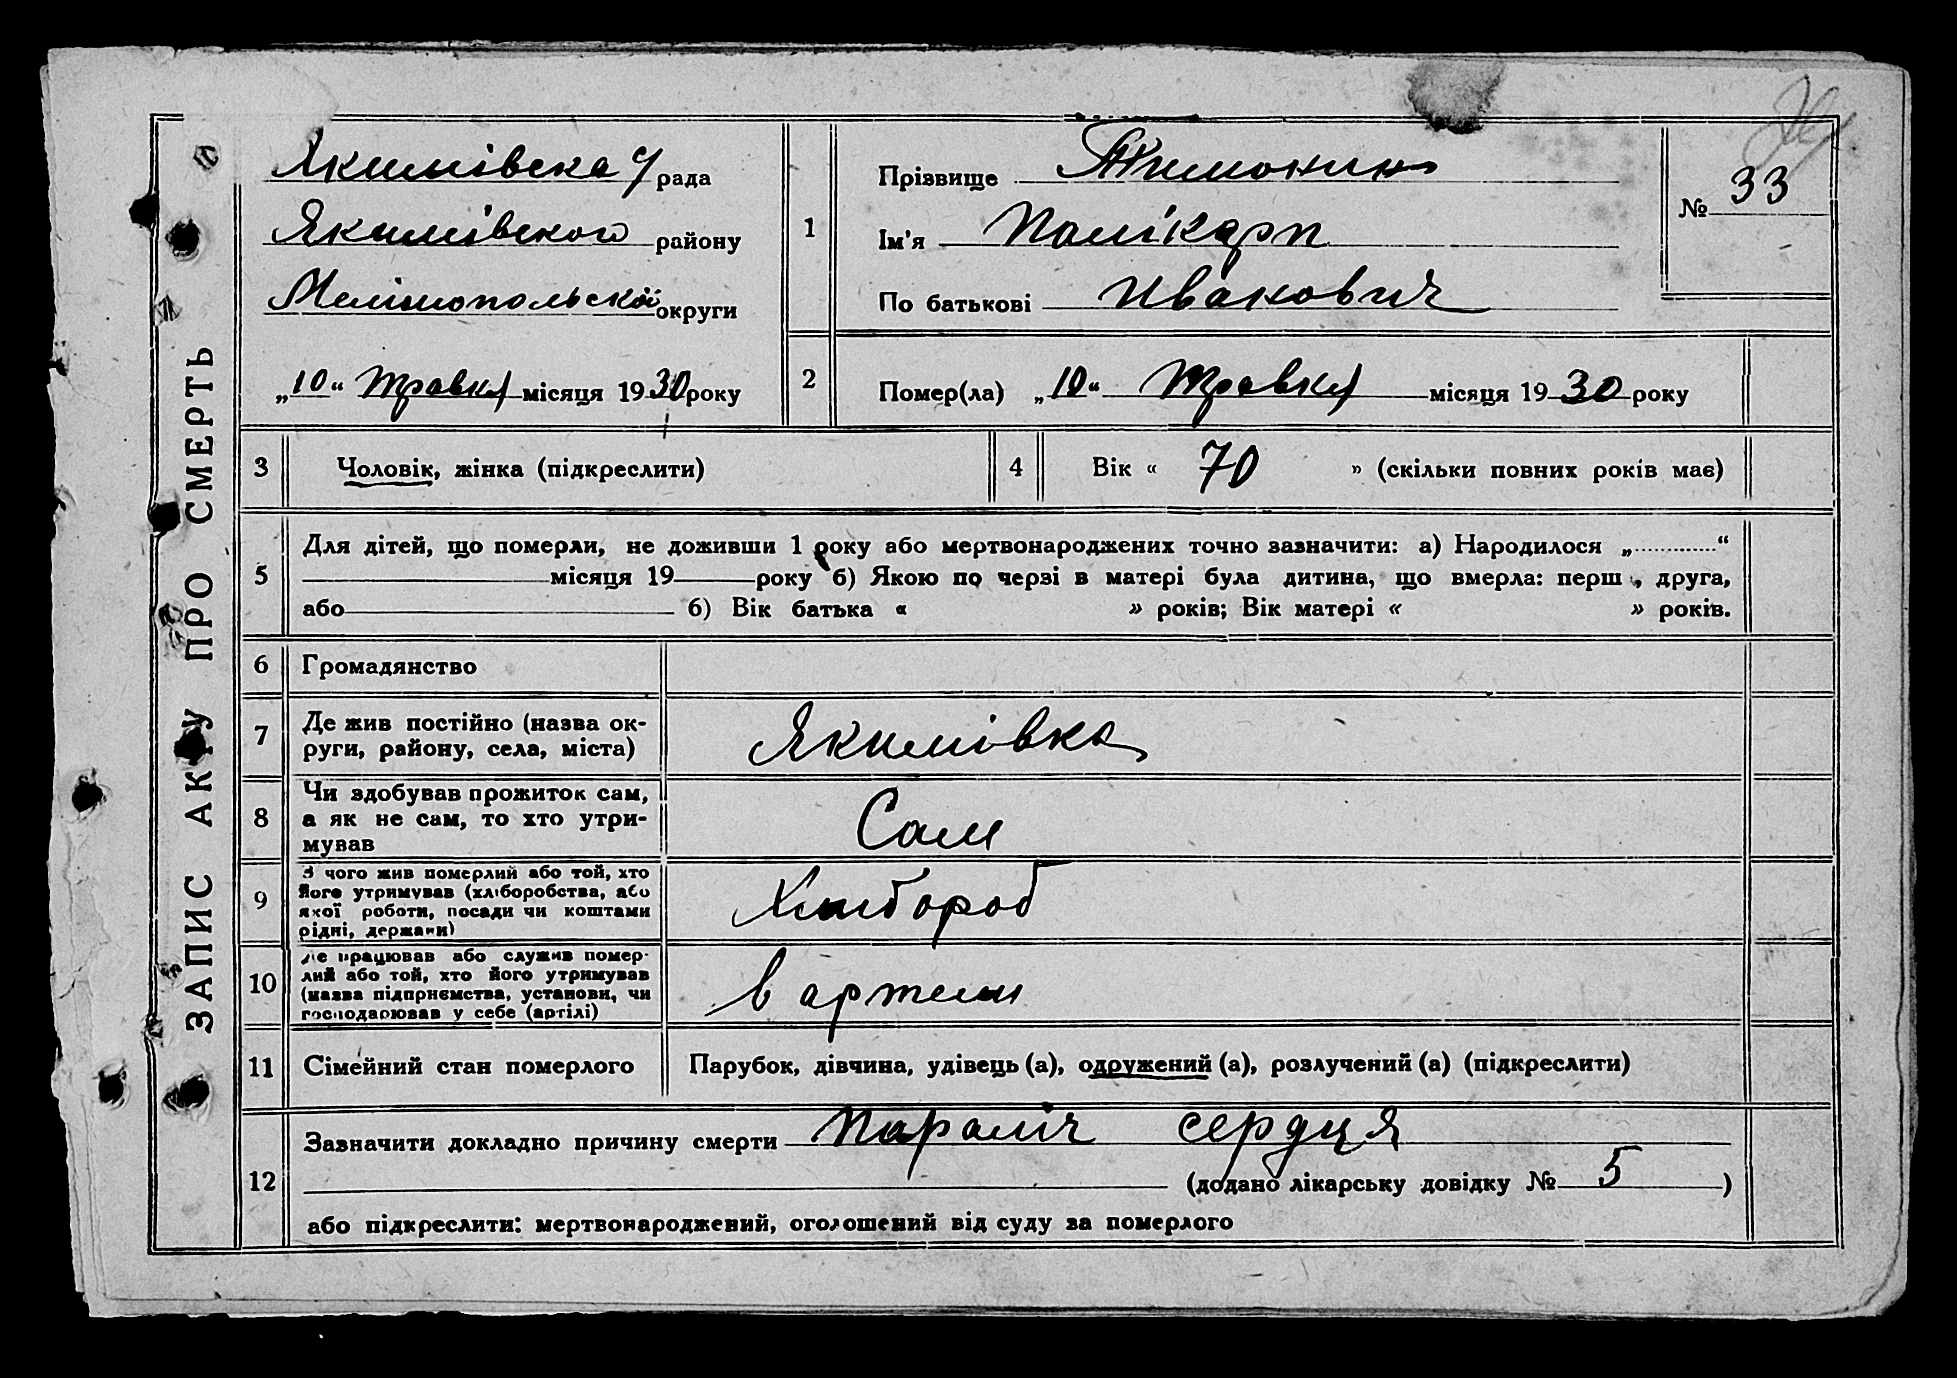 ЗАПИС АКТУ ПРО СМЕРТЬ
Якимівска рада
Якимівского району
Мелітопольскої округи
„10“ Травня місяця 1930 року
1
Прізвище Тимонин
Ім'я Полікарп
По батькові Иванович
№ 33
2
Помер(ла) „10“ Травня місяця 1930 року
3
Чоловік, жінка (підкреслити)
4
Вік « 70 » (скільки повних років має)
5
Для дітей, що померли, не доживши 1 року або мертвонароджених точно зазначити: а) Народилося „ “
місяця 19 року б) Якою по черзі в матері була дитина, що вмерла: перш , друга,
або б) Вік батька « » років; Вік матері « » років.
6
Громадянство
7
Де жив постійно (назва ок-
руги, району, села, міста)
Якимівка
8
Чи здобував прожиток сам,
а як не сам, то хто утри-
мував
Сам
9
З чого жив померлий або той, хто
його утримував (хліборобства, або
якої роботи, посади чи коштами
рідні, держави)
Хлібороб
10
Де працював або служив помер-
лий або той, хто його утримував
(назва підприємства, установи, чи
господарював у себе (артілі)
в артели
11
Сімейний стан померлого
Парубок, дівчина, удівець (а), одружений (а), розлучений (а) (підкреслити)
12
Зазначити докладно причину смерти Параліч сердця
(додано лікарську довідку № 5 )
або підкреслити: мертвонароджений, оголошений від суду за померлого